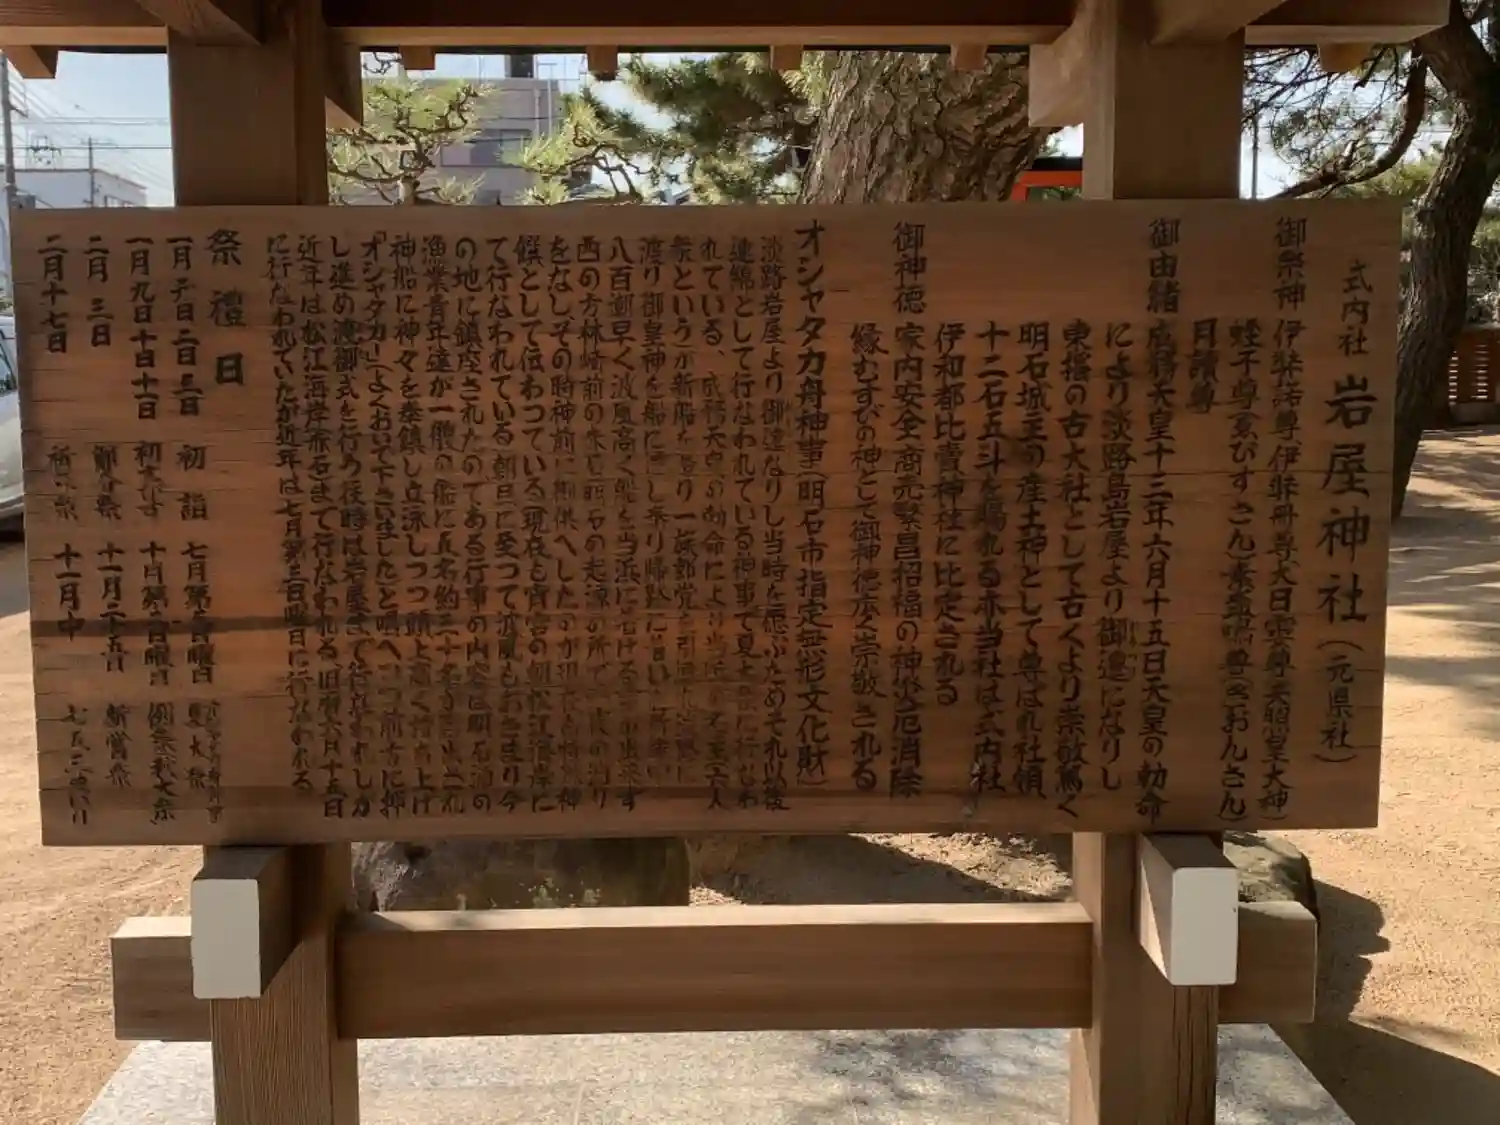 式内社 岩屋神社(元県社)
御祭神 伊弉諾尊 伊弉冊尊 大日霊尊(天照皇大神)
蛭子尊(えびすさん)素盞嗚尊(ぎおんさん)
月讀尊
御由緒 成務天皇十三年六月十五日天皇の勅命
により淡路島岩屋より御遷になりし
東播の古大社として古くより崇敬篤く
明石城主の産土神として尊ばれ社領
十二石五斗を賜れる亦当社は式内社
伊和都比賣神社に比定される
御神徳 家内安全商売繁昌招福の神災厄消除
縁むすびの神として御神徳広く崇敬される
オシャタカ舟神事(明石市指定無形文化財)
淡路岩屋より御遷なりし当時を偲ぶためそれ以後
連綿として行なわれている神事で夏大祭に行なわ
れている、成務天皇の勅命により当浜の名主六人
衆というが新船を造り一族郎党を引連れ淡路に
渡り御皇神を船に遷し乗り帰路に着いた所
八百潮早く波風高く船を当浜に着ける事が出来ず
西の方林崎前の
をなしその時神前に御供へしたのが
饌として伝わつている(現在も宵宮の朝松江海岸に
て行なわれている)朝日に至つて波風もおさまり今
の地に鎮座されたのである行事の内容は明石浦の
漁業青年達が一艘の船に
神船に神々を奉鎮し立泳しつつ頭上高く持ち上げ
「オシャタカ」(よくおいで下さいました)と唱へつつ前方に押
し進め渡御式を行ふ往時は岩屋まで行なわれしが
近年は松江海岸(赤石)まで行なわれる、旧暦六月十五日
に行なわれていたが近年は七月第三日曜日に行なわれる
祭禮日
一月一日二日三日 初詣 七月第三日曜日 夏大祭
一月九日十日十一日 初えびす 十月第二日曜日 例祭秋大祭
二月三日 節分祭 十一月二十五日 新嘗祭
二月十七日 祈年祭 十一月中 七五三詣り